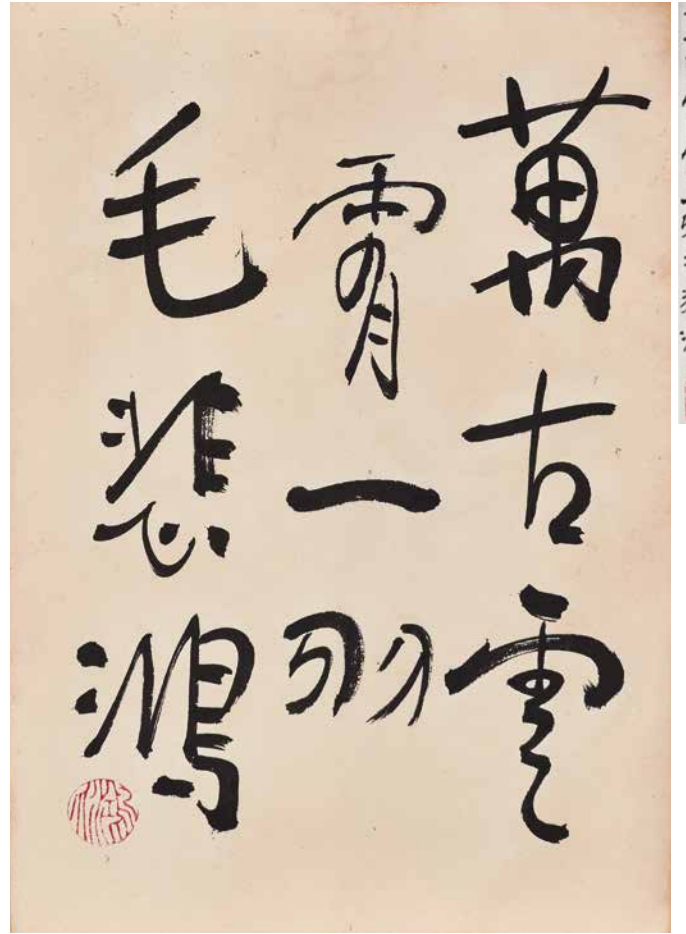 萬古雲
霄一羽
毛悲鴻